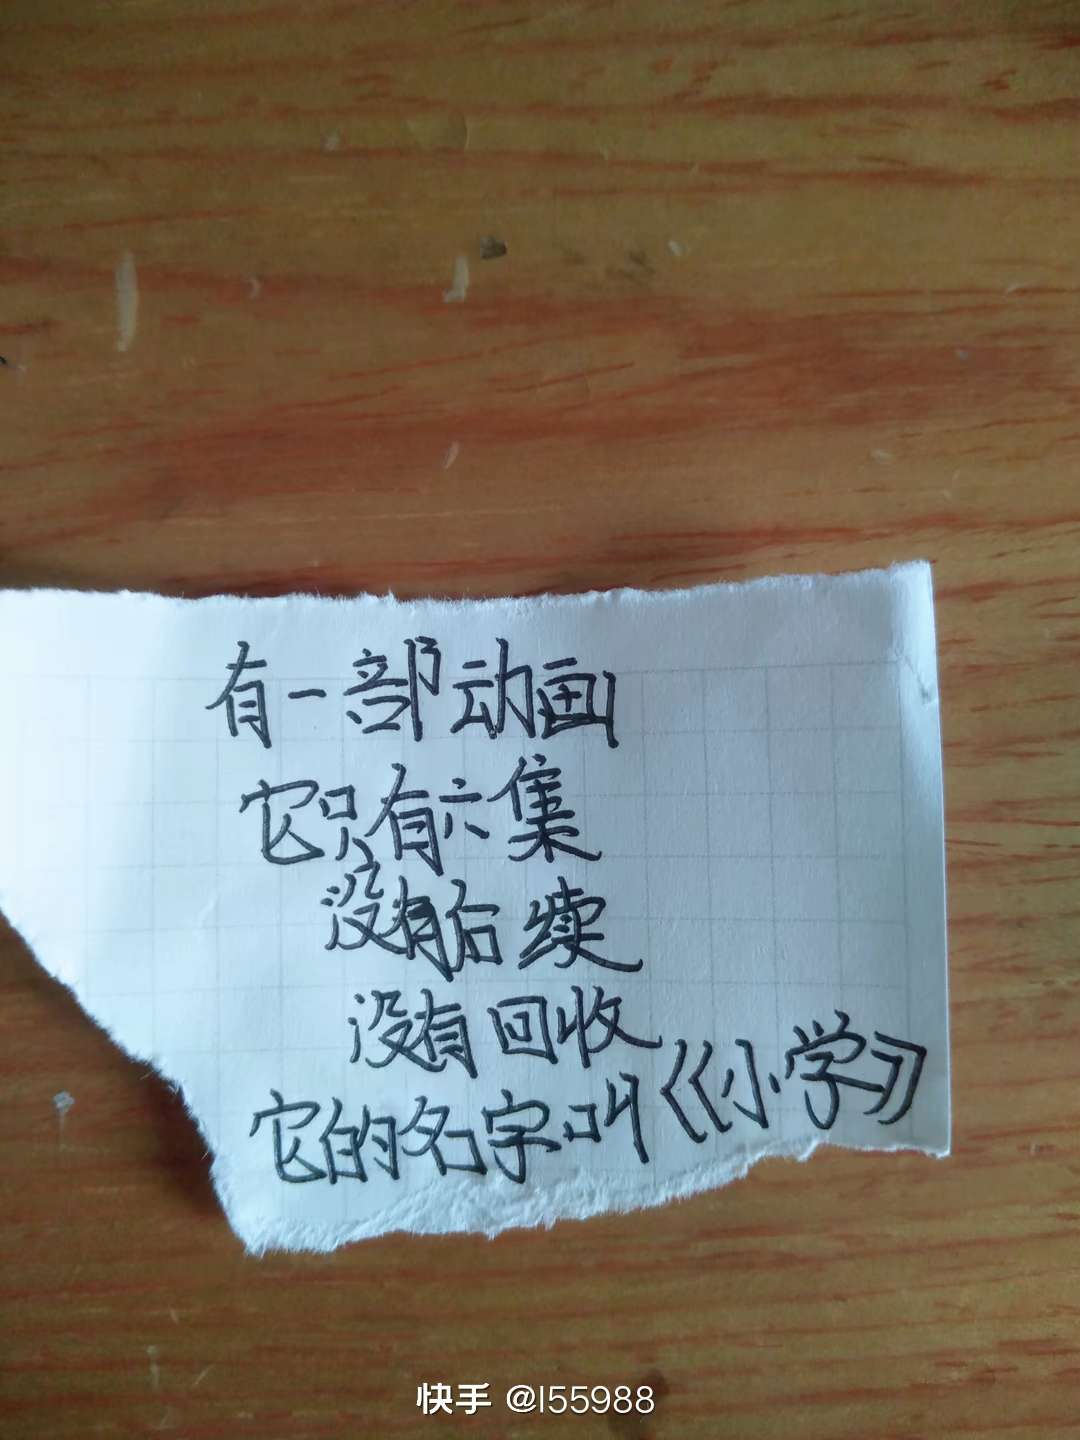 有一部动画
它只有六集
没有后续
没有回收
它的名字叫《小学》
快手 @l55988